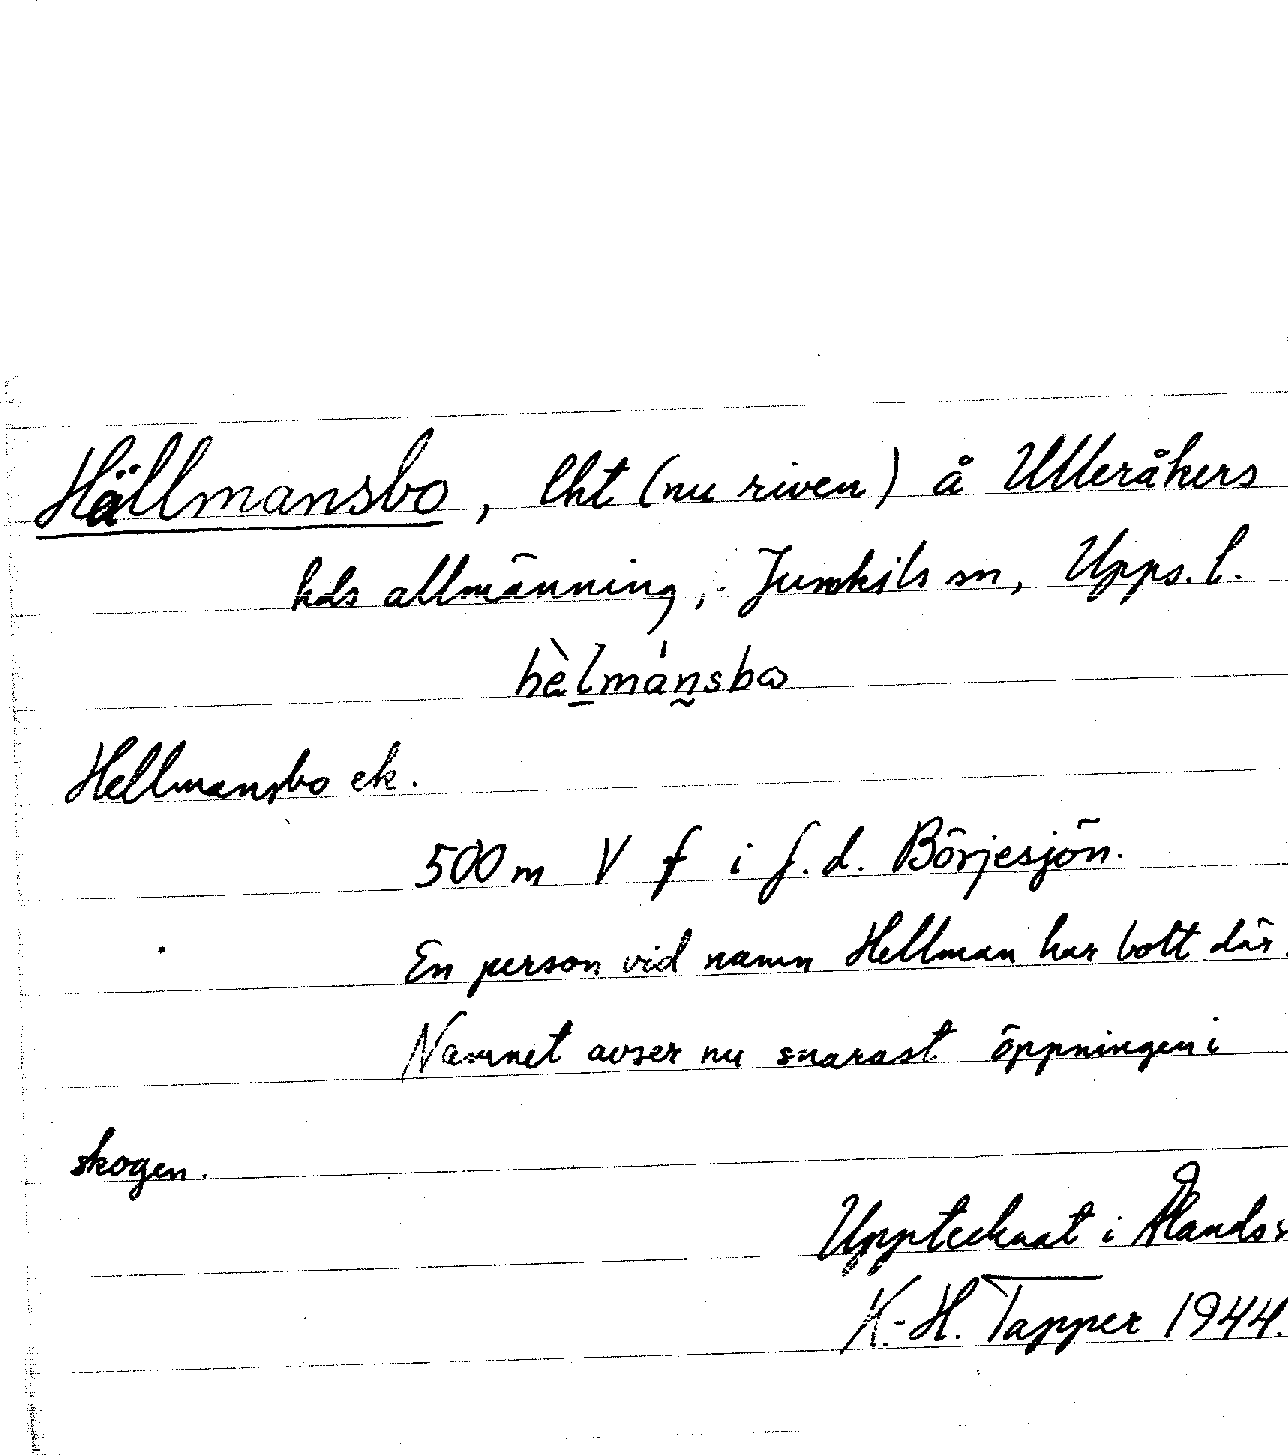 Hällmansbo, lht (nu riven) å Ulleråkers
hds allmänning, Jumkils sn, Upps. l.
hèlmánsbω
Hellmansbo ek.
500 m V f i f.d. Börjesjön.
En person vid namn Hellman har bott där.
Namnet avser nu snarast öppningen i
skogen.
Upptecknat i Ålands s
K.-H. Tapper 1944.